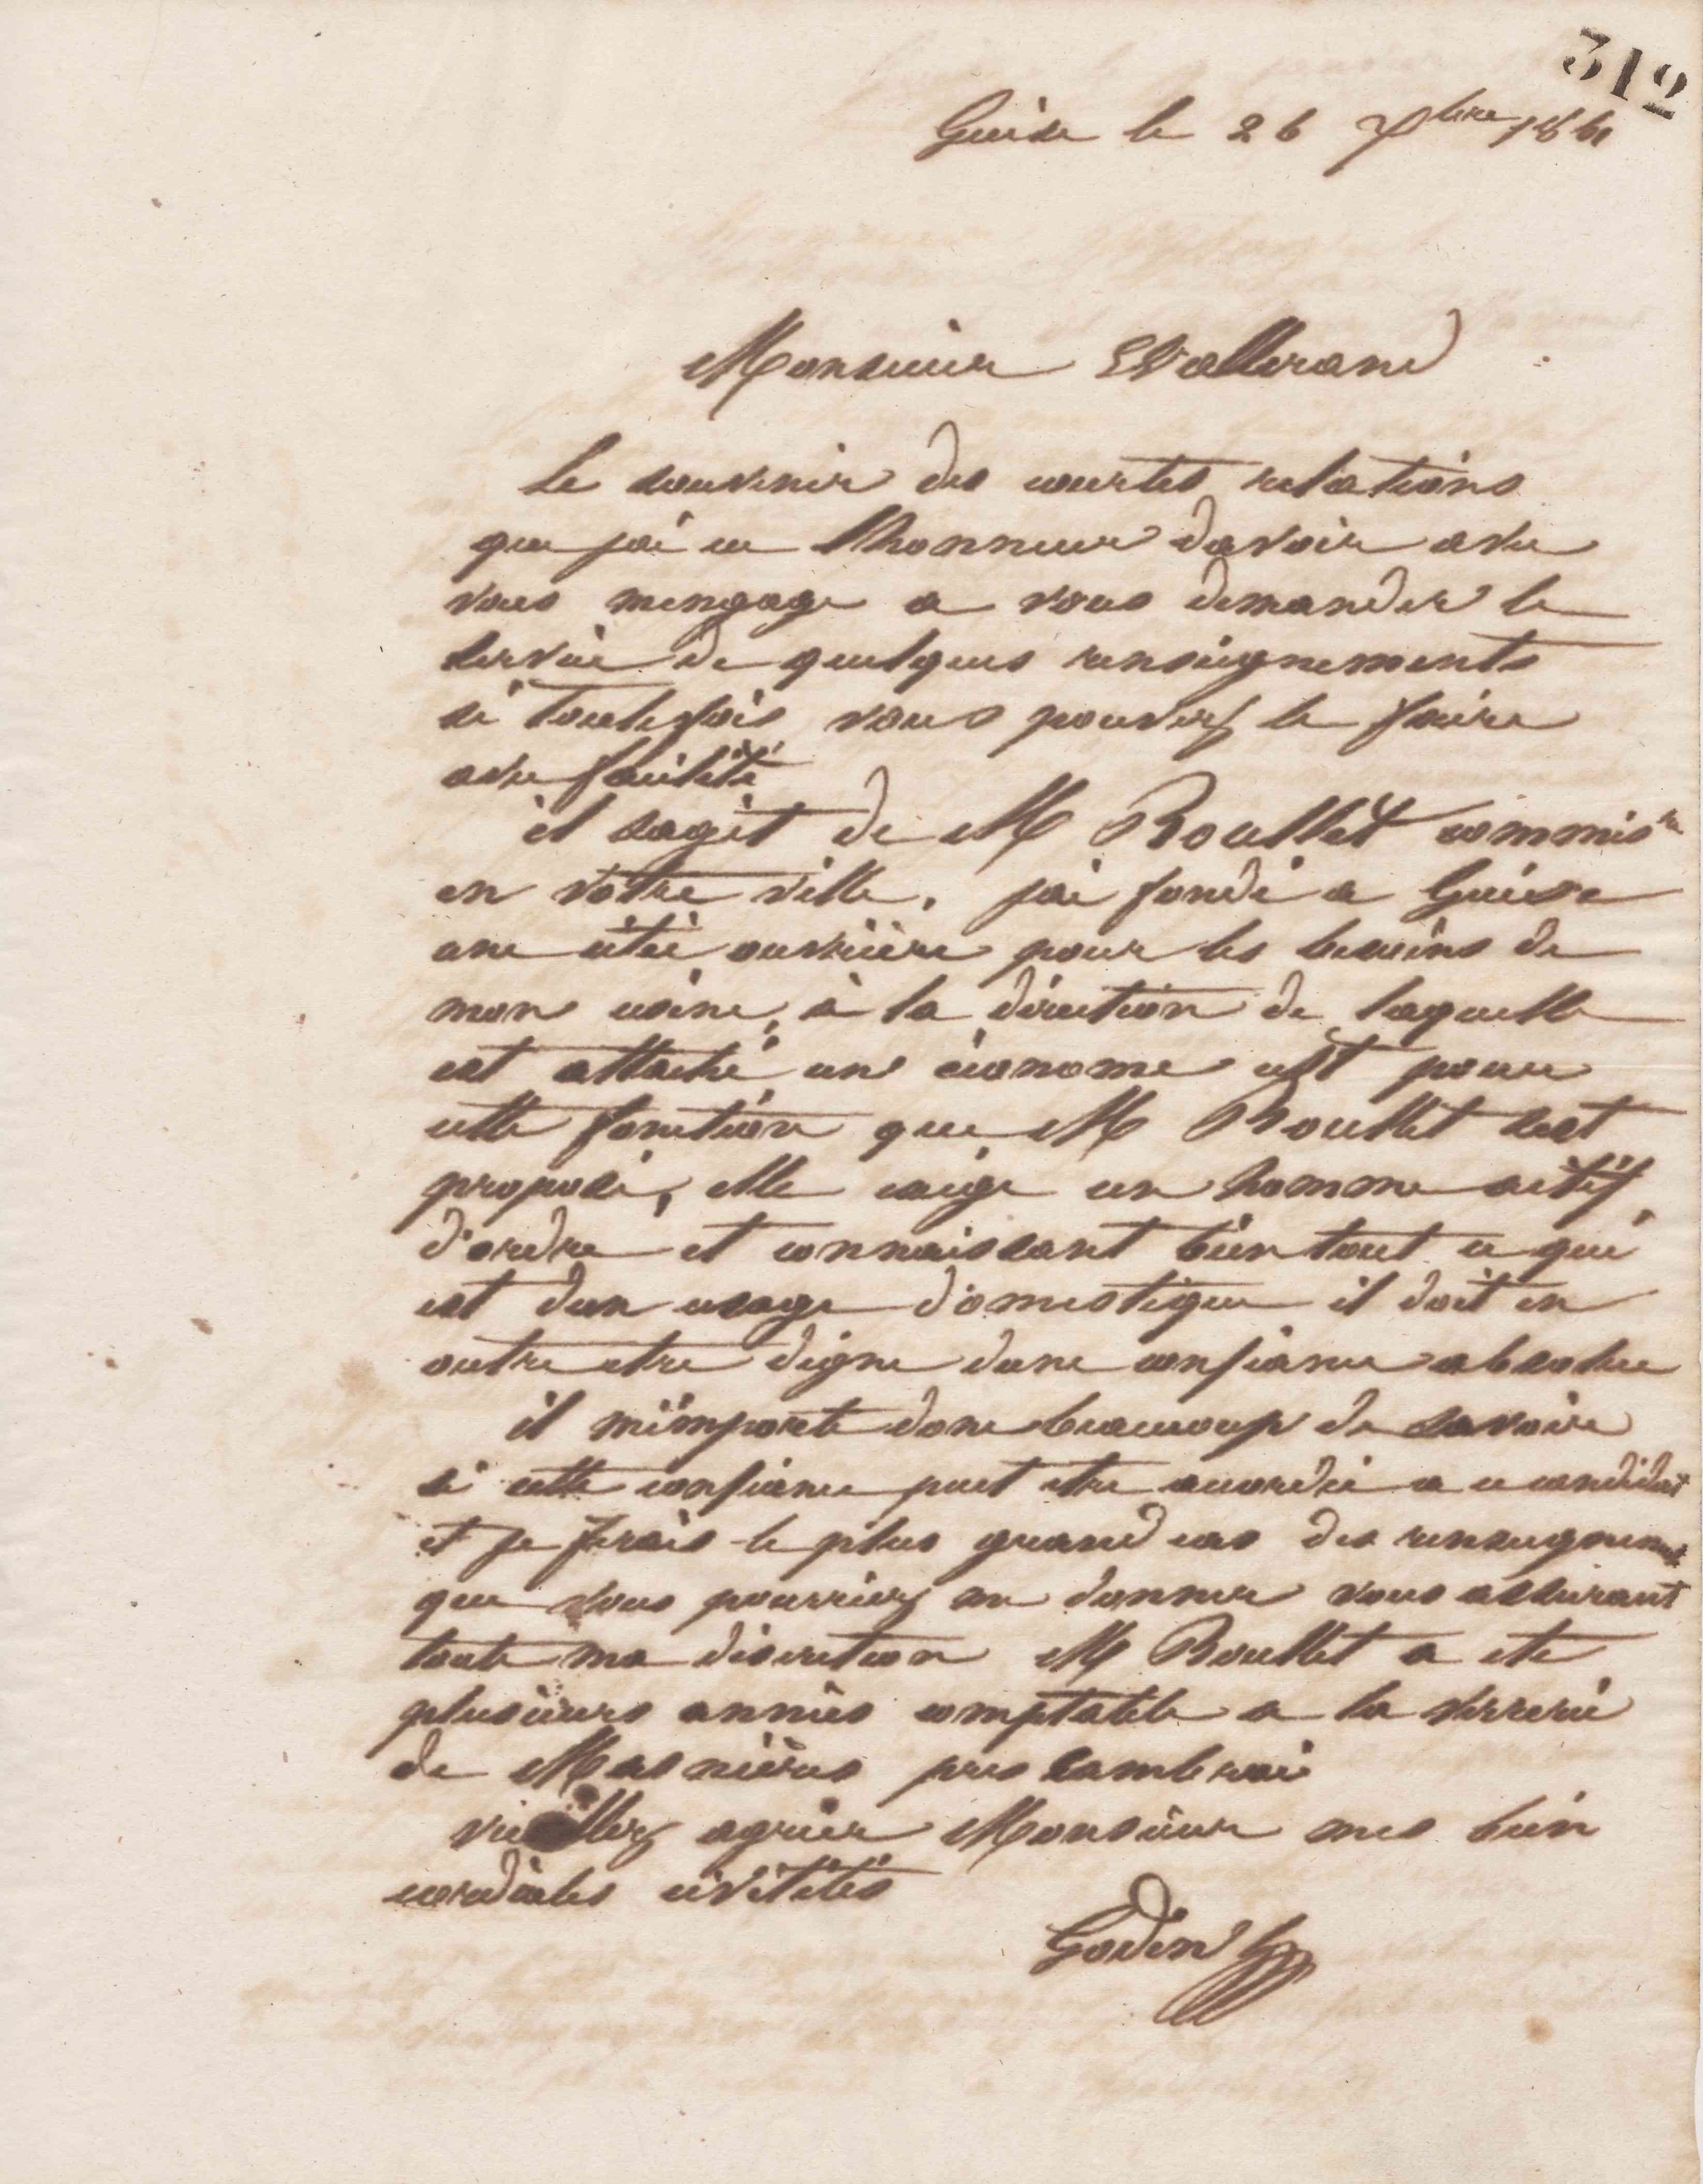 312
Guise le 26 7bre 1861
Monsieur Wallerand
Le souvenir des courtes relations
que jai eu lhonneur davoir avec
vous mengage a vous demander le
service de quelques renseignements
si toutefois vous pouvez le faire
avec facilité
il sagit de M Roullet commisre
en votre ville. jai fondé a Guise
une cité ouvrière pour les besoins de
mon usine, à la direction de laquelle
est attaché un économe cest pour
cette fonction que M Roullet sest
proposé, elle exige un homme actif,
d'ordre et connaissant bien tout ce qui
est dun usage domestique il doit en
outre etre digne dune confiance absolue
il m'importe donc beaucoup de savoir
si cette confiance peut etre accordée a ce candidat
et je ferais le plus grand cas des renseignements
que vous pourriez me donner vous assurant
toute ma discretion M Roullet a ete
plusieurs années comptable a la verrerie
de Masnières pres Cambrai
veuillez agréer Monsieur mes bien
cordiales civilités
Godin